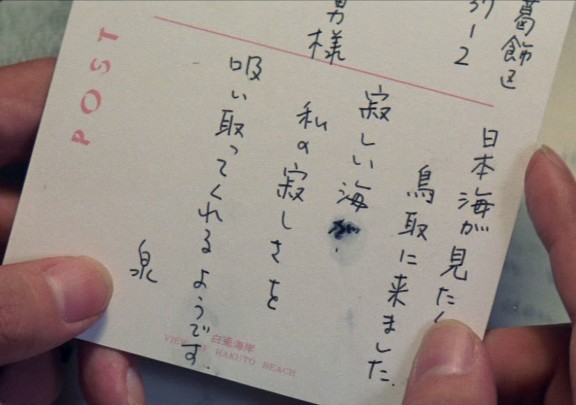 葛飾区
1-2
男様
日本海が見たく
鳥取に来ました.
寂しい海が.
私の寂しさを
吸い取ってくれるようです.
泉
POST
白兎海岸
VIEW OF HAKUTO BEACH